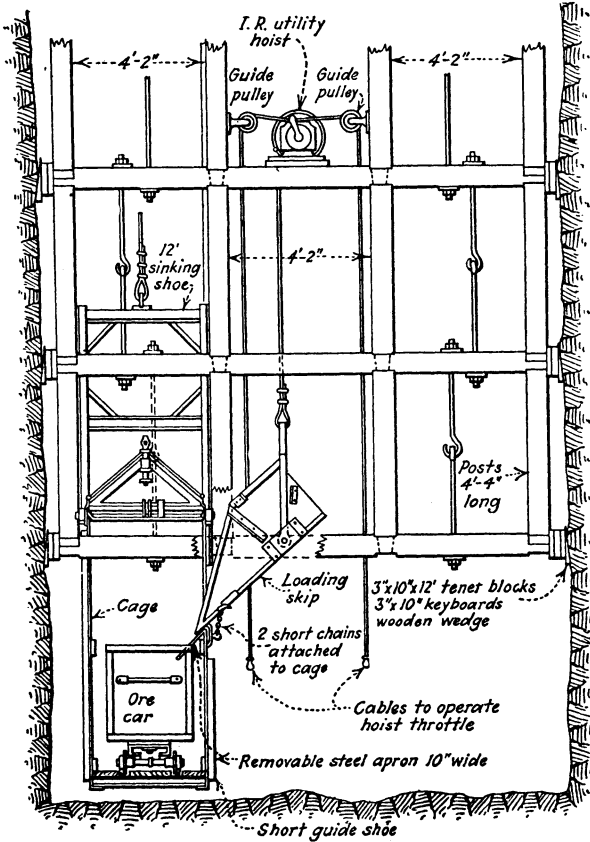 I.R. utility
hoist
4'-2"
4'-2"
Guide
pulley
Guide
pulley
12'
sinking
shoe
4'-2"
Posts
4'-4"
long
Loading
skip
3"x10"x12' tenet blocks
3"x10" keyboards
wooden wedge
Cage
2 short chains
attached
to cage
Ore
car
Cables to operate
hoist throttle
Removable steel apron 10" wide
Short guide shoe